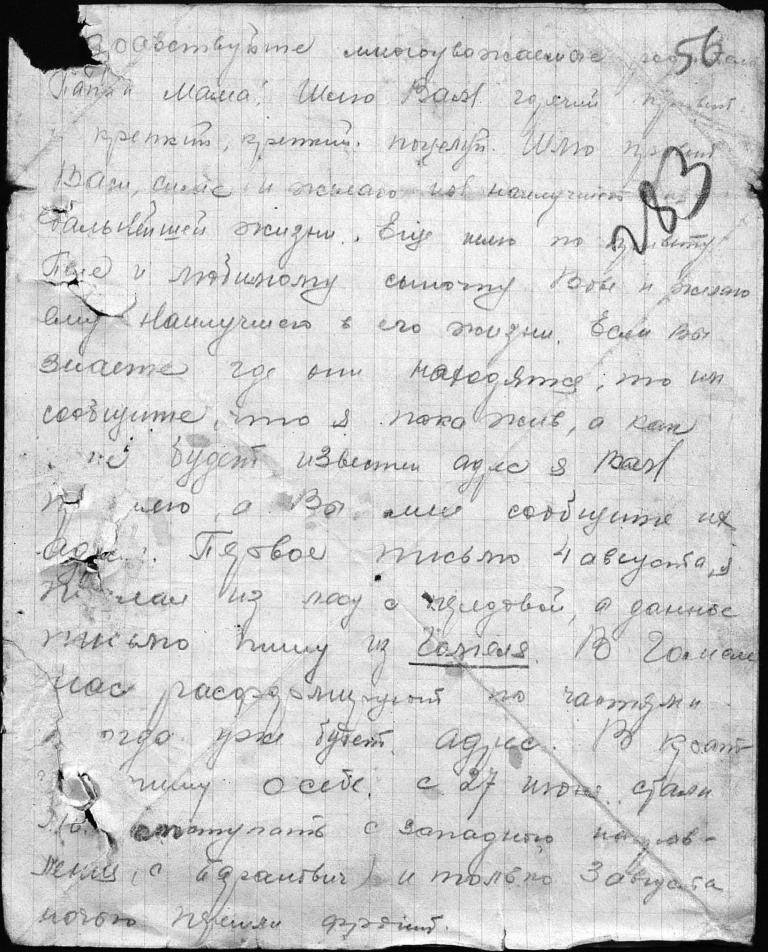 Здравствуйте многоуважаемые
56
Папа и мама! Шлю Вам горячий привет
и крепкий, крепкий поцелуй. Шлю привет
283
Васи, и желаю наилучшего
дальнейшей жизни. Еще шлю по привету
Поле и любимому сыночку Вове и желаю
ему наилучшего в его жизни. Если Вы
знаете где они находятся, то им
сообщите, что я пока жив, а как
будет известен адрес я Вам
а Вы мне сообщите их
адрес. Первое письмо 4 августа, я
из лесу с а данное
письмо пишу из Гомеля. В Гомеле
нас расформируют по частям
тогда уже будет адрес. В крат
пишу о себе. с 27 июня стали
отступать с западного направ-
ления, (с Баранович) и только 3 августа
ночью прешли фронт.